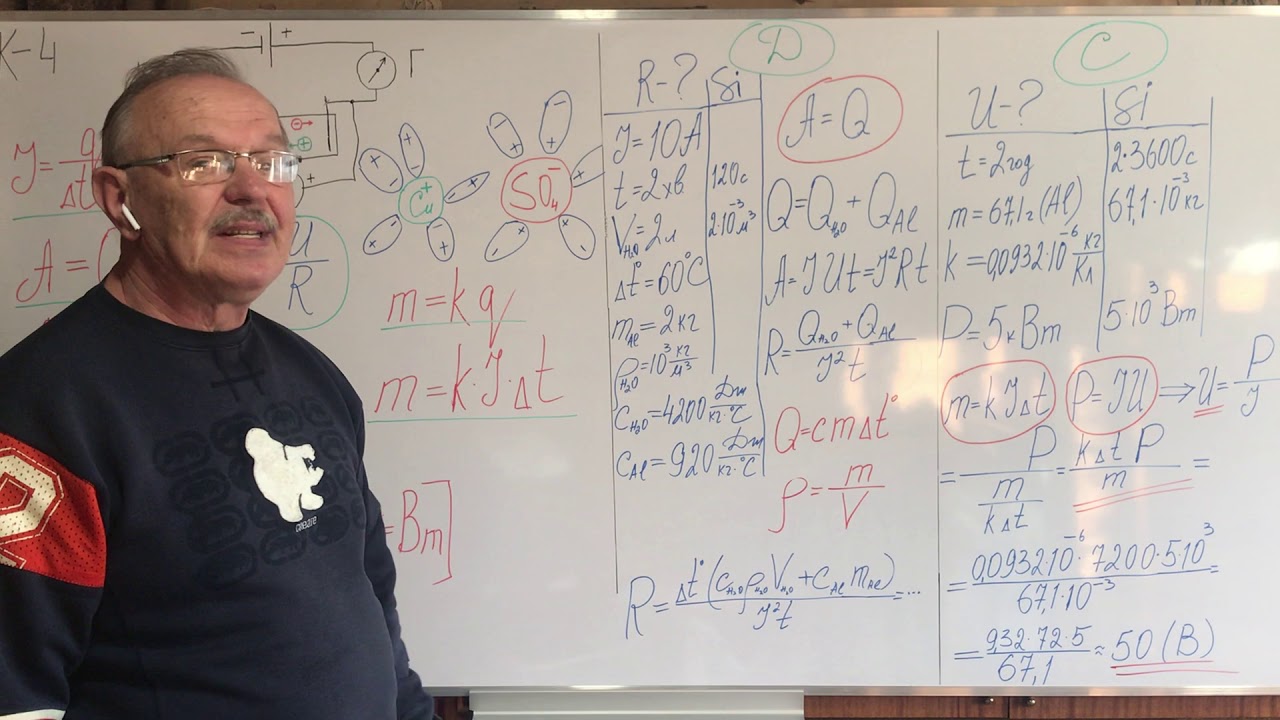 К-4
- +
Г
J = q/Δt
A = (
U/R
Cu⁺
SO₄⁻
m = k q
m = k·J·Δt
= Вт]
D
R-? | Si
J = 10 A
t = 2 хв. | 120 с
V_H₂O = 2 л | 2·10⁻³ м³
Δt° = 60°C
m_Al = 2 кг
ρ_H₂O = 10³ кг/м³
c_H₂O = 4200 Дж/кг·°C
c_Al = 920 Дж/кг·°C
A = Q
Q = Q_H₂O + Q_Al
A = JUt = J²Rt
R = (Q_H₂O + Q_Al)/(J²t)
Q = cmΔt°
ρ = m/V
R = Δt°(c_H₂O ρ_H₂O V_H₂O + c_Al m_Al)/(J²t) = ...
C
U-? | Si
t = 2 год | 2·3600 с
m = 67,1 г (Al) | 67,1·10⁻³ кг
k = 0,0932·10⁻⁶ кг/Кл
P = 5 кВт | 5·10³ Вт
m = k J Δt P = JU ⇒ U = P/J
= P/(m/(kΔt)) = kΔtP/m =
= 0,0932·10⁻⁶·7200·5·10³/(67,1·10⁻³) =
= 9,32·72·5/67,1 ≈ 50 (В)